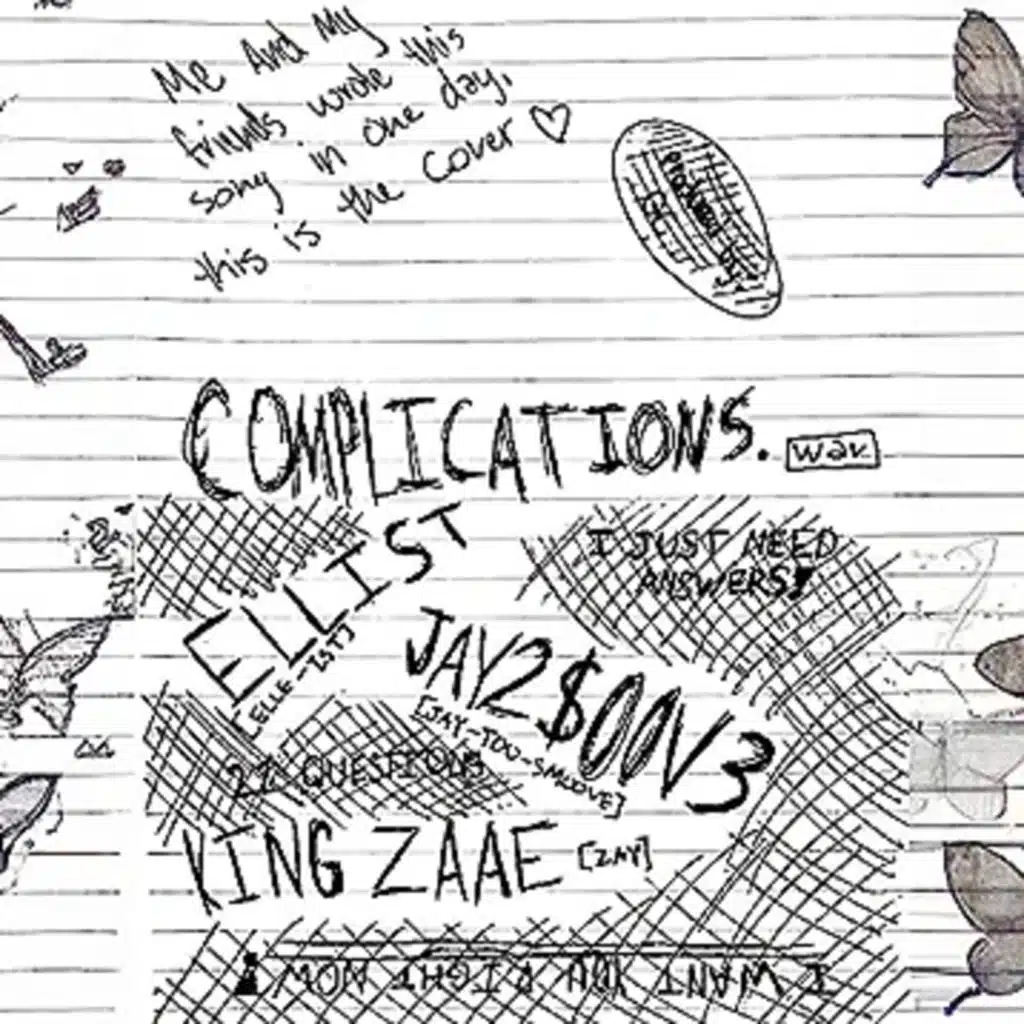 Me And My
friends wrote this
song in one day,
this is the Cover ♡
COMPLICATIONS.
wav
ELLIST
[ELLE-IST]
I JUST NEED
ANSWERS!
JAY2$OOV3
[JAY-TOO-SMOOVE]
QUESTIONS
KING ZAAE [ZAY]
I WANT YOU RIGHT NOW